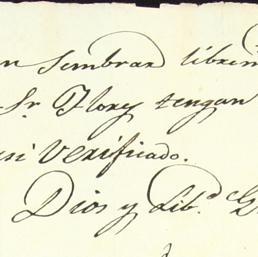 n sembrar librem
Sr. Flores tengan
asi verificado.
Dios y Lib.d